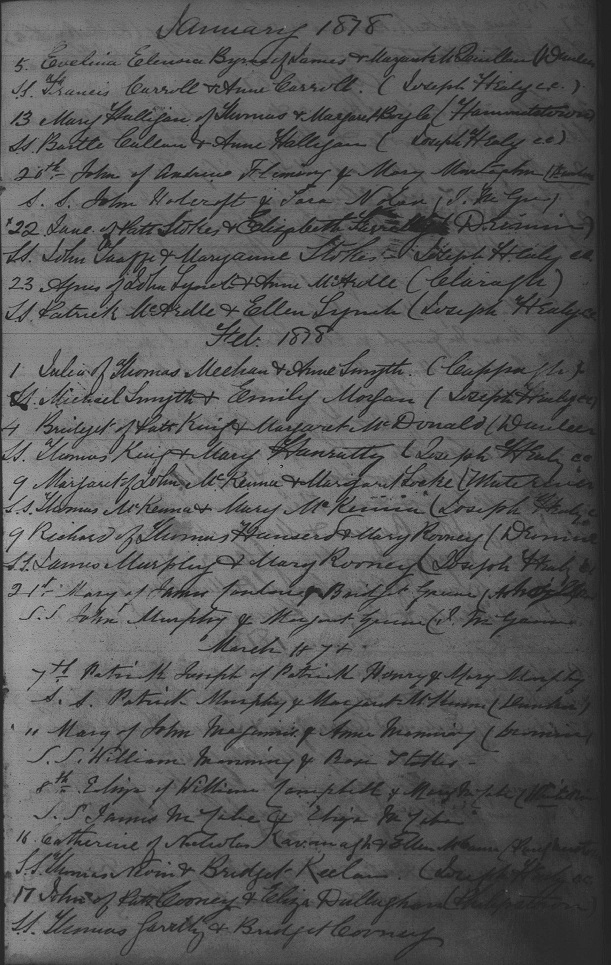 January 1878
5. Evelina Elenora Byrne of James & Margaret McQuillan (Dunleer
SS. Francis Carroll & Anne Carroll. (Joseph Healy cc.)
13 Mary Halligan of Thomas & Margaret Boyle (Hammondstown)
SS. Bartle Cullen & Anne Halligan (Joseph Healy cc)
20th John of Andrew Fleming & Mary Monaghan (Dunleer
S. S. John Holcroft & Sara Nolan
22 Jane of Patt Stokes & Elizabeth (Dromin)
SS. John & Maryanne Stokes - Joseph Healy cc
23 Agnes of John Lynch & Anne McArdle (Claragh)
SS Patrick McArdle & Ellen Lynch (Joseph Healy cc
Feb. 1878
1 Julia of Thomas Meehan & Anne Smyth. (Cappagh)
SS. Michael Smyth & Emily Morgan (Joseph Healy cc)
4 Bridget of Patt King & Margaret McDonald (Dunleer
SS. Thomas King & Mary Hanratty (Joseph Healy cc
9 Margaret of John McKenna & Margaret Locke
S.S. Thomas McKenna & Mary McKenna (Joseph Healy c
9 Richard of Thomas & Mary Rooney (Dromin
SS. James Murphy & Mary Rooney (Joseph Healy cc
21st Mary of James & Bridget
S.S. John Murphy & Margaret
March 1878
7th Patrick Joseph of Patrick Henry & Mary Murphy
S. S. Patrick Murphy & Margaret (Dunleer)
11 Mary of John Maginnis & Anne Manning (Dromin)
S.S. William Manning & Rose Stokes -
8th Eliza of William Campbell & Mary McCabe
S.S James McCabe & Eliza McCabe
16 Catherine of Nicholas Kavanagh & Ellen
S.S. Thomas & Bridget Keelan. (Joseph Healy cc
17 John of Patt Cooney & Eliza (Philipstown)
SS. Thomas & Bridget Cooney